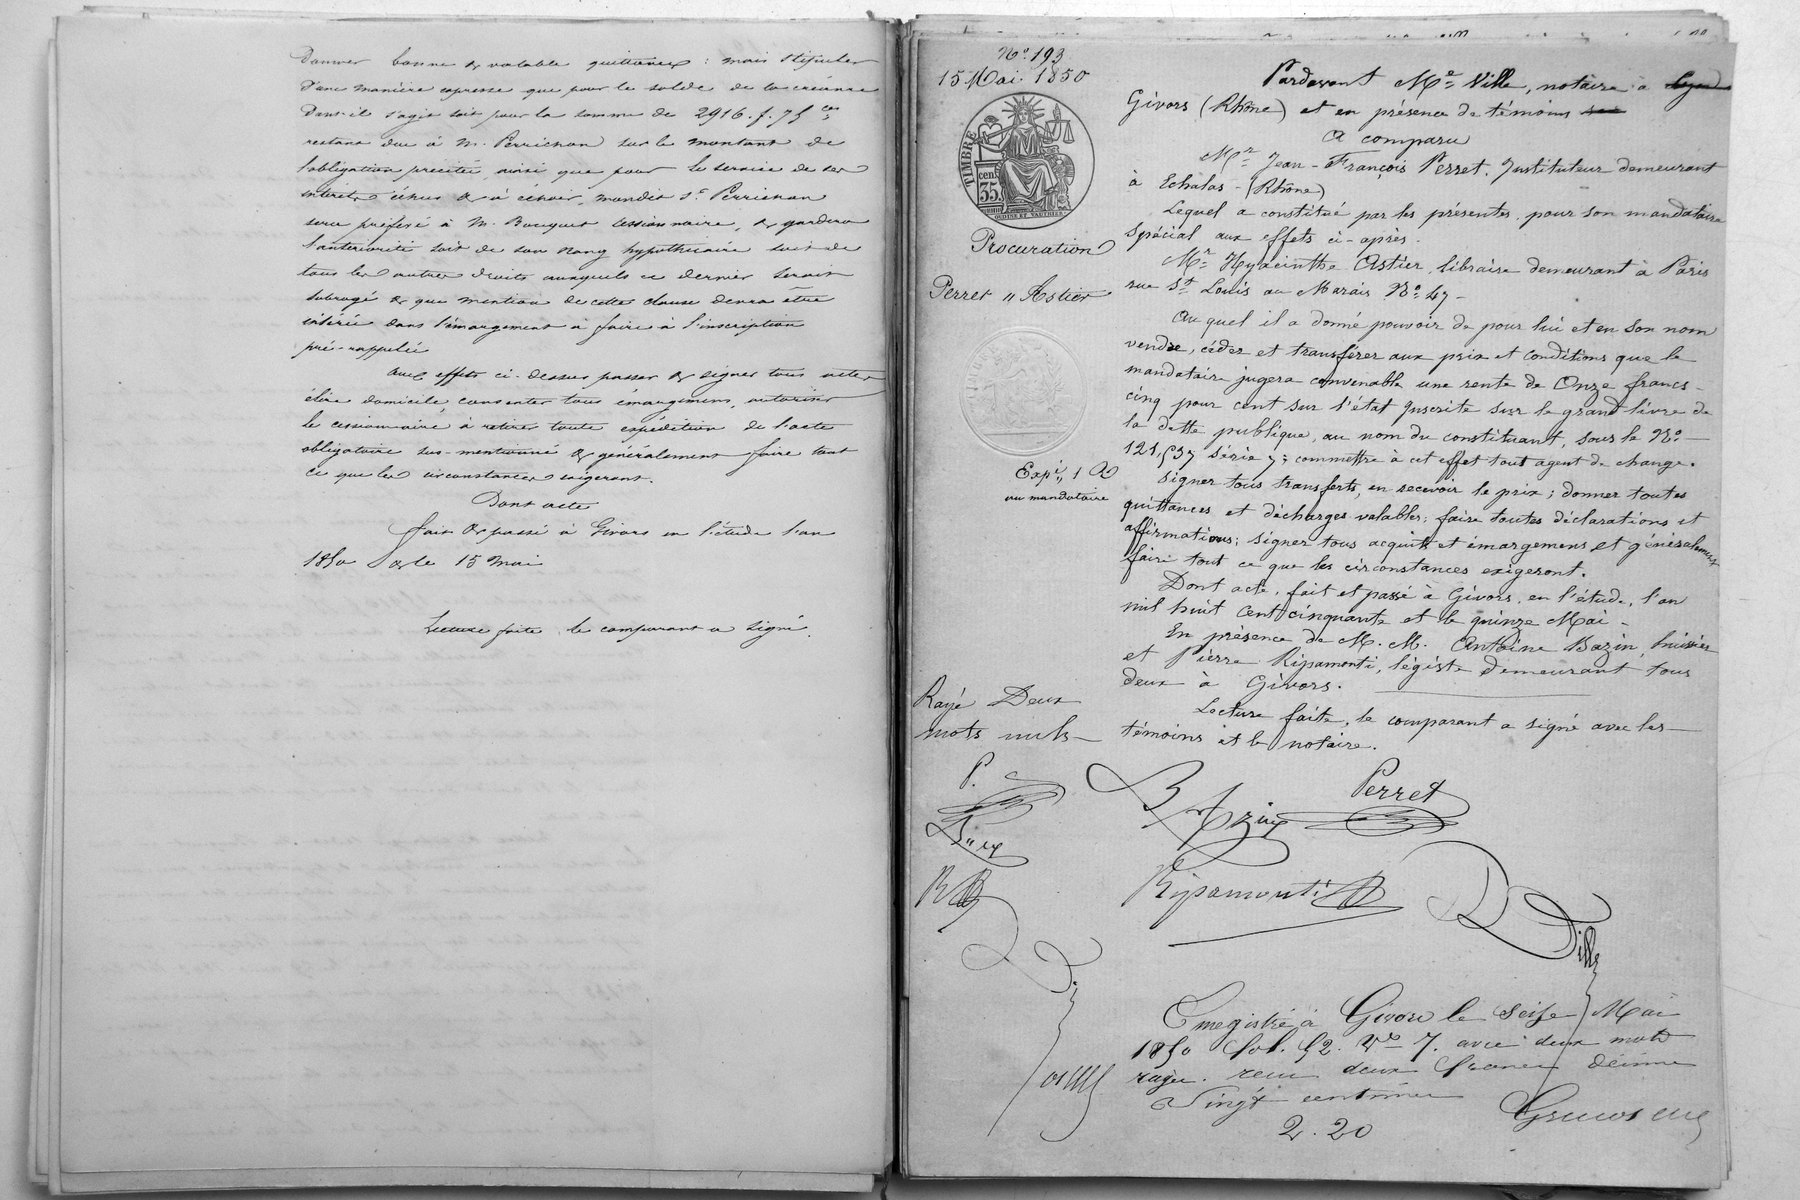 Donner bonne & valable quittance : mais stipuler
d'une manière expresse que pour le solde de la créance
dont il s'agit soit pour la somme de 2916 f. 75 ces
restant due à M. Perrichon sur le montant de
l'obligation précitée ainsi que pour le service de ses
intérêts échus & à échoir, mondit Sr Perrichon
sera préféré à M. Bouquet cessionnaire, & gardera
l'antériorité soit de son rang hypothécaire soit de
tous les autres droits auxquels ce dernier serait
subrogé & que mention de cette clause devra être
insérée dans l'émargement à faire à l'inscription
pré-rappelée
Aux effets ci-dessus passer & signer tous actes
élire domicile, consentir tous émargemens, autoriser
le cessionnaire à retirer toute expédition de l'acte
obligatoire sus-mentionné & généralement faire tout
ce que les circonstances exigeront.
Dont acte
fait & passé à Givors en l'étude l'an
1850 & le 15 mai
Lecture faite, le comparant a signé.
No. 193
15 Mai 1850
TIMBRE
35 cent
OUDINÉ ET VAUTHIER
Procuration
Perret " Astier
Expé 1 R
au mandataire
Pardevant Me Ville, notaire à
Givors (Rhône) et en présence de témoins
A comparu
Mr Jean-François Perret, Instituteur demeurant
à Echalas - (Rhône)
Lequel a constitué par les présentes, pour son mandataire
spécial aux effets ci-après.
Mr Hyacinthe Astier, libraire demeurant à Paris
rue St Louis au Marais No 47 -
Au quel il a donné pouvoir de pour lui et en son nom
vendre, céder et transférer aux prix et conditions que le
mandataire jugera convenable une rente de Onze francs -
cinq pour cent sur l'état Inscrite sur le grand livre de
la dette publique, au nom du constituant, sous le No -
121,537 série 7; commettre à cet effet tout agent de change.
Signer tous transferts, en recevoir le prix ; donner toutes
quittances et décharges valables; faire toutes déclarations et
affirmations; signer tous acquits et émargemens et généralement
faire tout ce que les circonstances exigeront.
Dont acte, fait et passé à Givors, en l'étude, l'an
mil huit cent cinquante et le quinze Mai -
En présence de M. M. Antoine Bazin, huissier
et Pierre Ripamonti, légiste demeurant tous
deux à Givors.
Lecture faite, le comparant a signé avec les -
témoins et le notaire.
Rayé Deux
mots nuls -
P.
Perret
Bazin
Ripamonti
Ville
Enregistré à Givors le Seize Mai
1850 fol. 52. Vo 7. avec deux mots
rayés. reçu deux francs décime
Vingt centimes
2.20